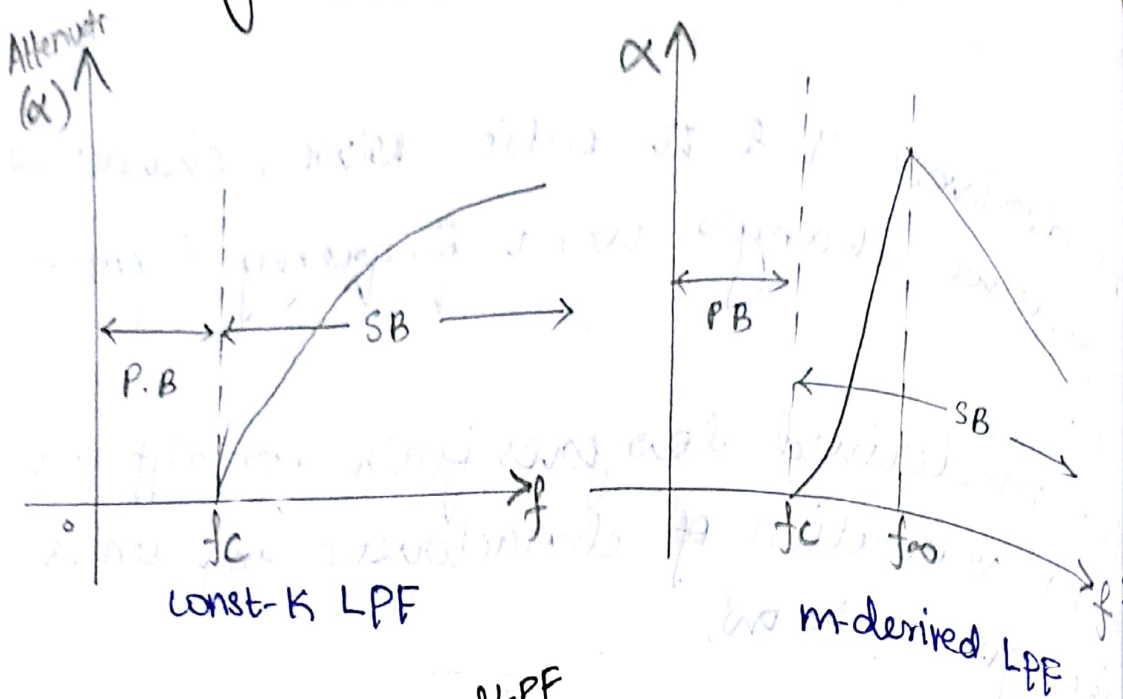 Attenuatn
(α)
P.B
SB
0
fc
f
const-K LPF
α
PB
SB
fc
f∞
f
m-derived LPF
LPF